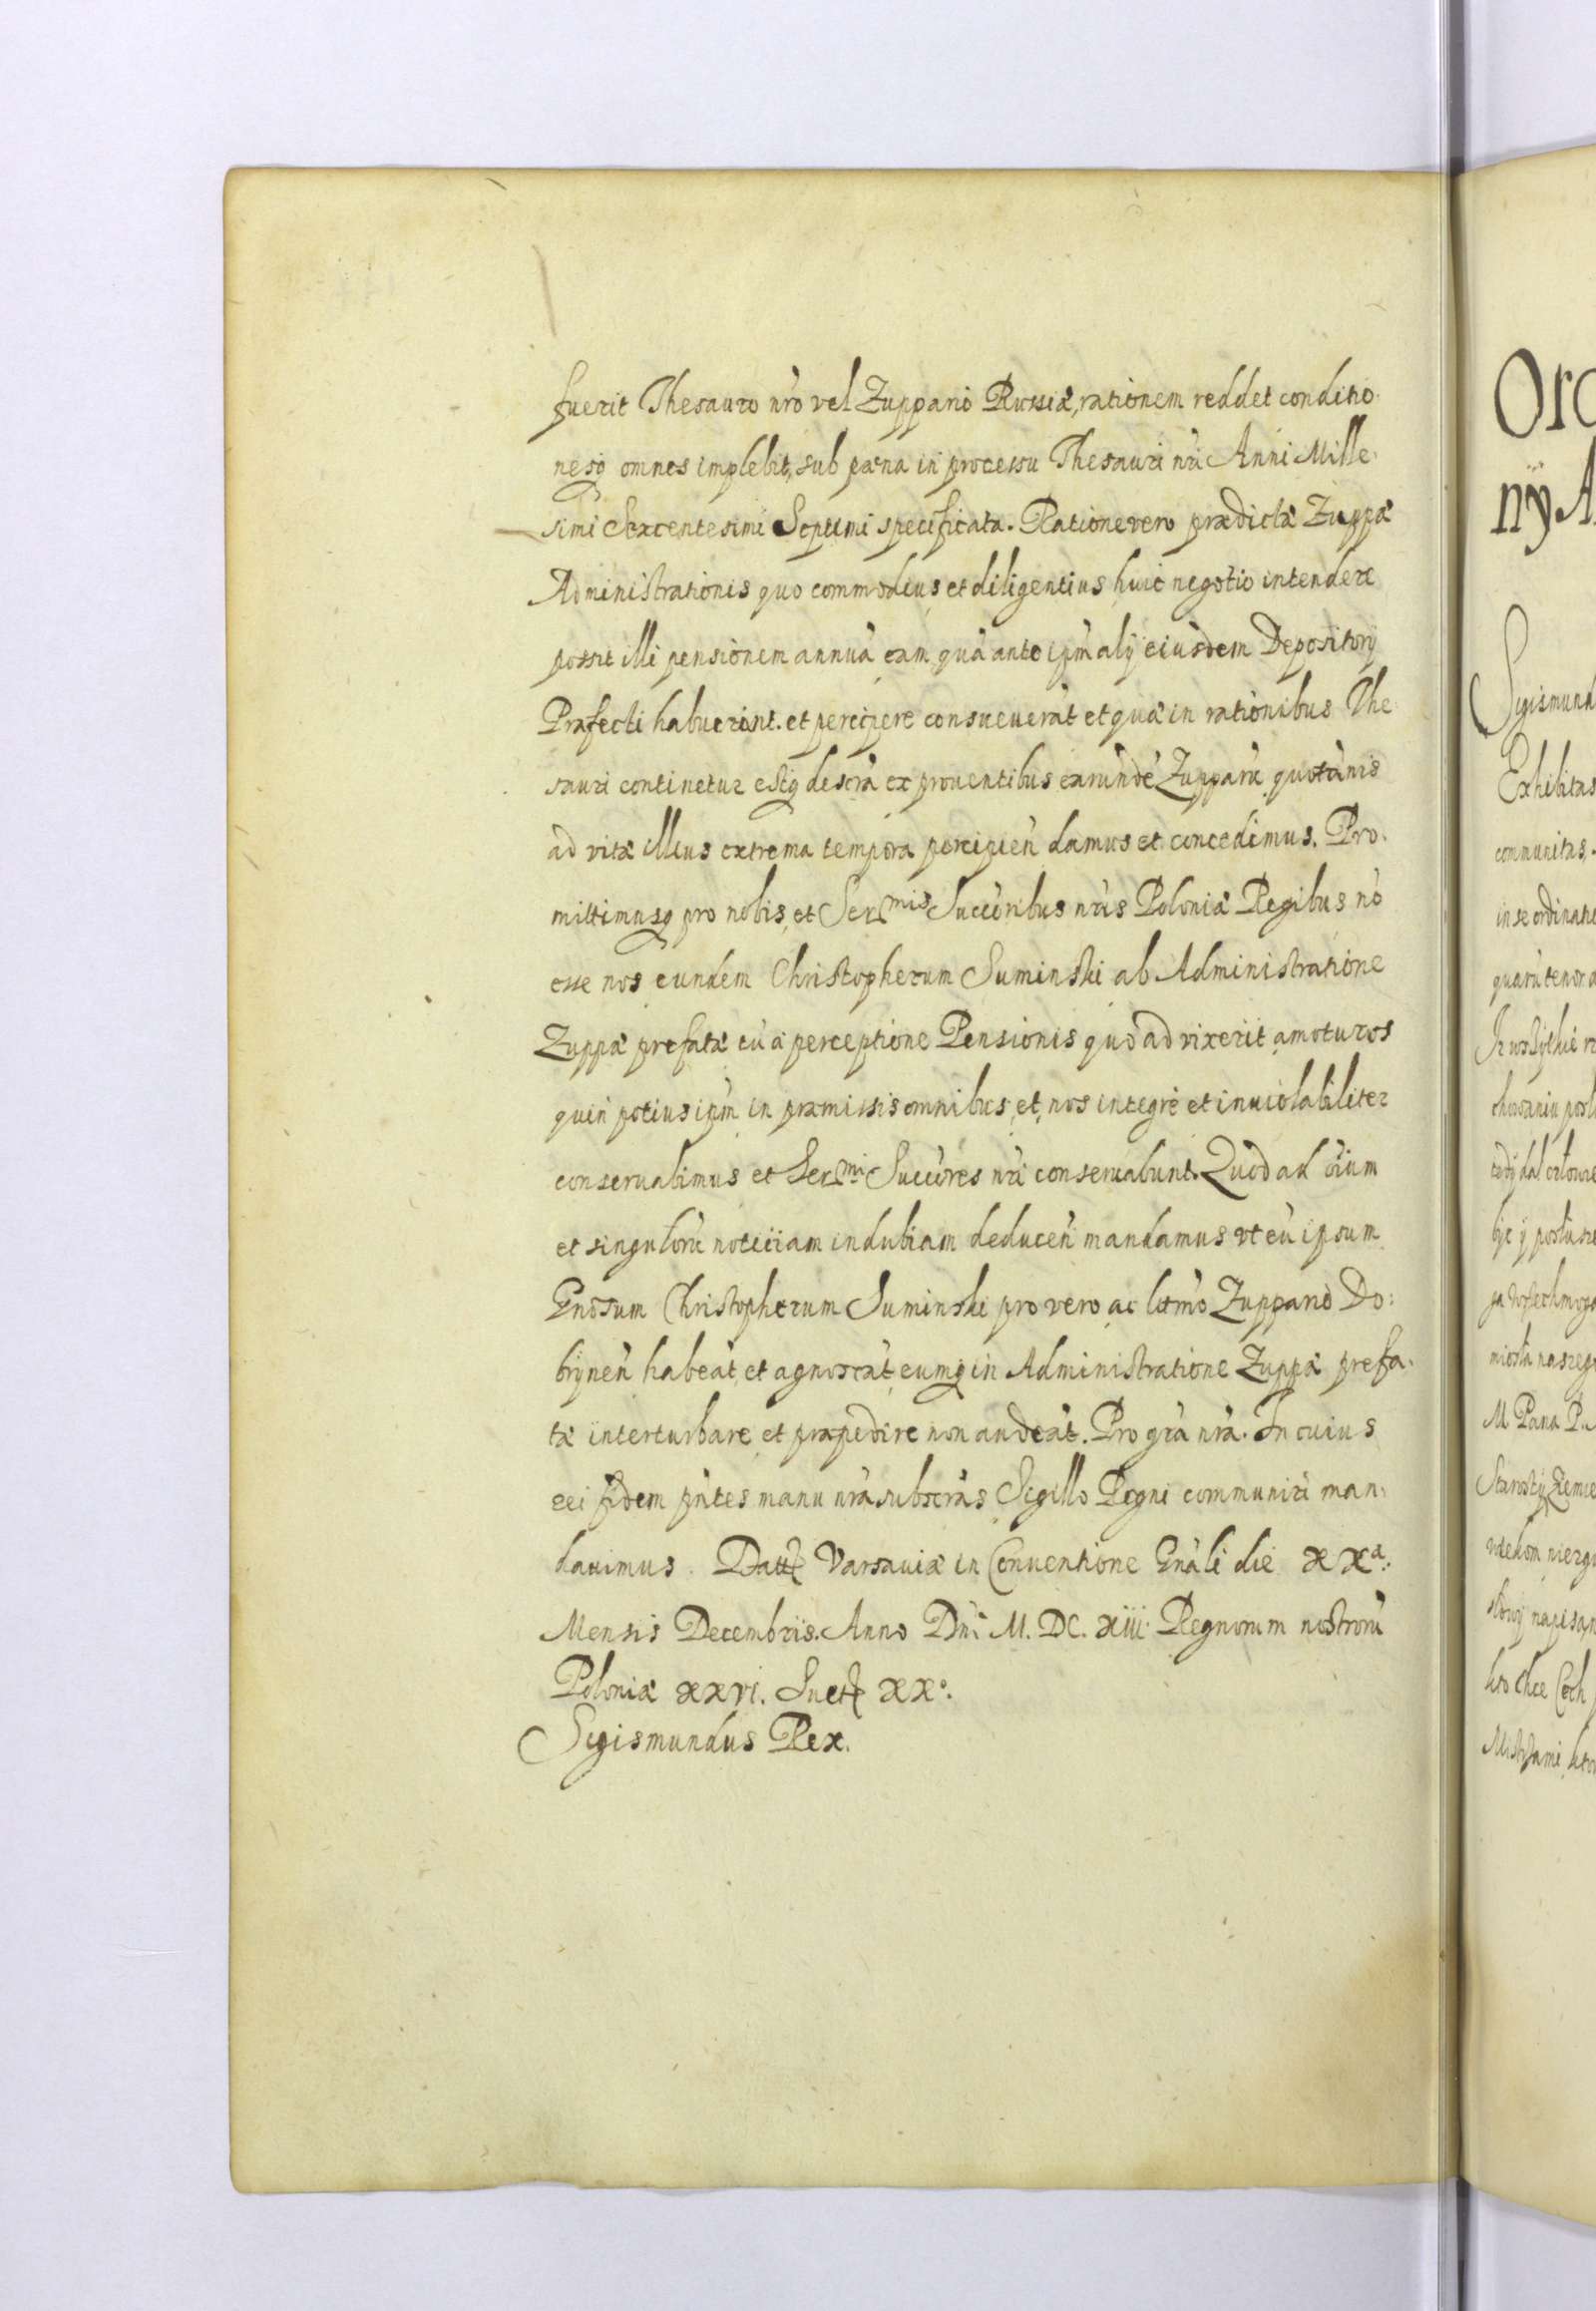 fuerit Thesauro nr̃o vel Zuppario Russiæ, rationem reddet conditio-
nesq̨ omnes implebit, sub pæna in processu Thesauri nr̃i Anni Mille-
simi Sexcentesimi Septimi specificata. Ratione vero prædictæ Zuppæ
Administrationis quo commodius et diligentius huic negotio intendere
possit illi pensionem annuã eam quã ante ip̃m alij eiusdem Depositorij
Præfecti habuerint. et percipere consueuerãt et quæ in rationibus The-
sauri continetur estq̨ descr̃a ex prouentibus earundẽ Zupparũ quotãnis
ad vitæ illius extrema tempora percipieñ damus et concedimus. Pro-
mittimusq̨ pro nobis, et Sermis Succ̃oribus nr̃is Poloniæ Regibus nõ
esse nos eundem Christopherum Suminski ab Administratione
Zuppæ prefatæ eũ a perceptione Pensionis quo ad vixerit amoturos
quin potius ip̃m in præmissis omnibus, et nos integrè et inuiolabiliter
conseruabimus et Sermi Succ̃ores nr̃i conseruabunt. Quod ad õium
et singulorũ noticiam indubiam deduceñ mandamus vt eũ ipsum
Gnõsum Christopherum Suminski pro vero ac lẽtmo Zuppario Do:
brijneñ habeãt, et agnoscãt, eumq̨ in Administratione Zuppæ prefa-
tæ interturbare et præpedire non audeãt. Pro gr̃a nr̃a. In cuius
rei fidem pñtes manu nr̃a subscr̃as Sigillo Regni communiri man-
dauimus. Datt Varsauiæ in Conuentione Gnãli die XXa:
Mensis Decembris. Anno Dñi M. DC. XIII. Regnorum nostrorũ
Poloniæ XXVI. Suet XXo.
Sigismundus Rex.
nij A
Sigismund
Exhibitas
communitas,
in se ordinatio
quarũ tenor
M Pana